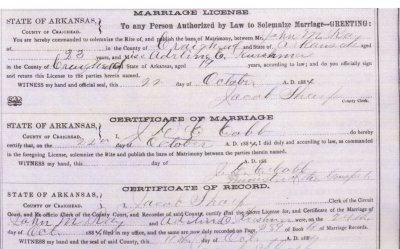 MARRIAGE LICENSE
STATE OF ARKANSAS,
COUNTY OF CRAIGHEAD.
To any Person Authorized by Law to Solemnize Marriage—GREETING:
You are hereby commanded to solemnize the Rite of, and publish the bans of Matrimony, between Mr. John M.
of in the County of Craighead and State of Arkansas aged
23 years, and Miss
in the County of Craighead and State of Arkansas, aged 19 years, according to law; and do you officially sign
and return this License to the parties herein named.
WITNESS my hand and official seal, this 22 day of October A. D. 1884
Jacob Sharp
County Clerk.
CERTIFICATE OF MARRIAGE
STATE OF ARKANSAS,
COUNTY OF CRAIGHEAD.
I, Cobb do hereby
certify that, on the 22nd day of October A. D. 1884, I did duly and according to law, as commanded
in the foregoing License, solemnize the Rite and publish the bans of Matrimony between the parties therein named.
WITNESS my hand, this day of A. D. 188
Cobb
CERTIFICATE OF RECORD.
STATE OF ARKANSAS,
COUNTY OF CRAIGHEAD.
I, Jacob Sharp Clerk of the Circuit
Court, and Ex officio Clerk of the County Court, and Recorder of said County, certify that the above License for, and Certificate of the Marriage of
John M. and were, on the day
of Oct 188 filed in my office, and the same are now duly recorded on Page of Book of Marriage Records.
WITNESS my hand and the seal of said County, this day of Oct